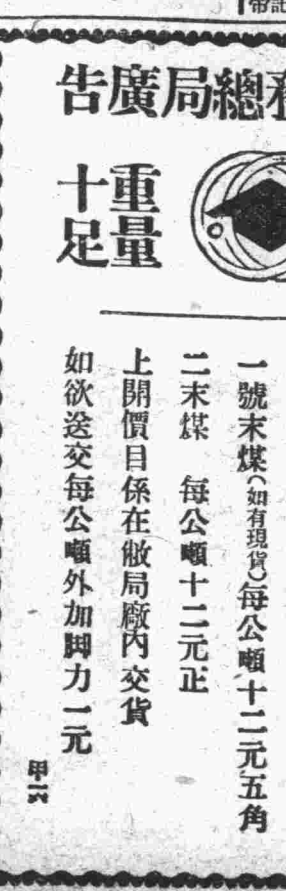 務總局廣告
重量
十足
一號末煤(如有現貨)每公噸十二元五角
二末煤 每公噸十二元正
上開價目係在敝局廠內交貨
如欲送交每公噸外加脚力一元